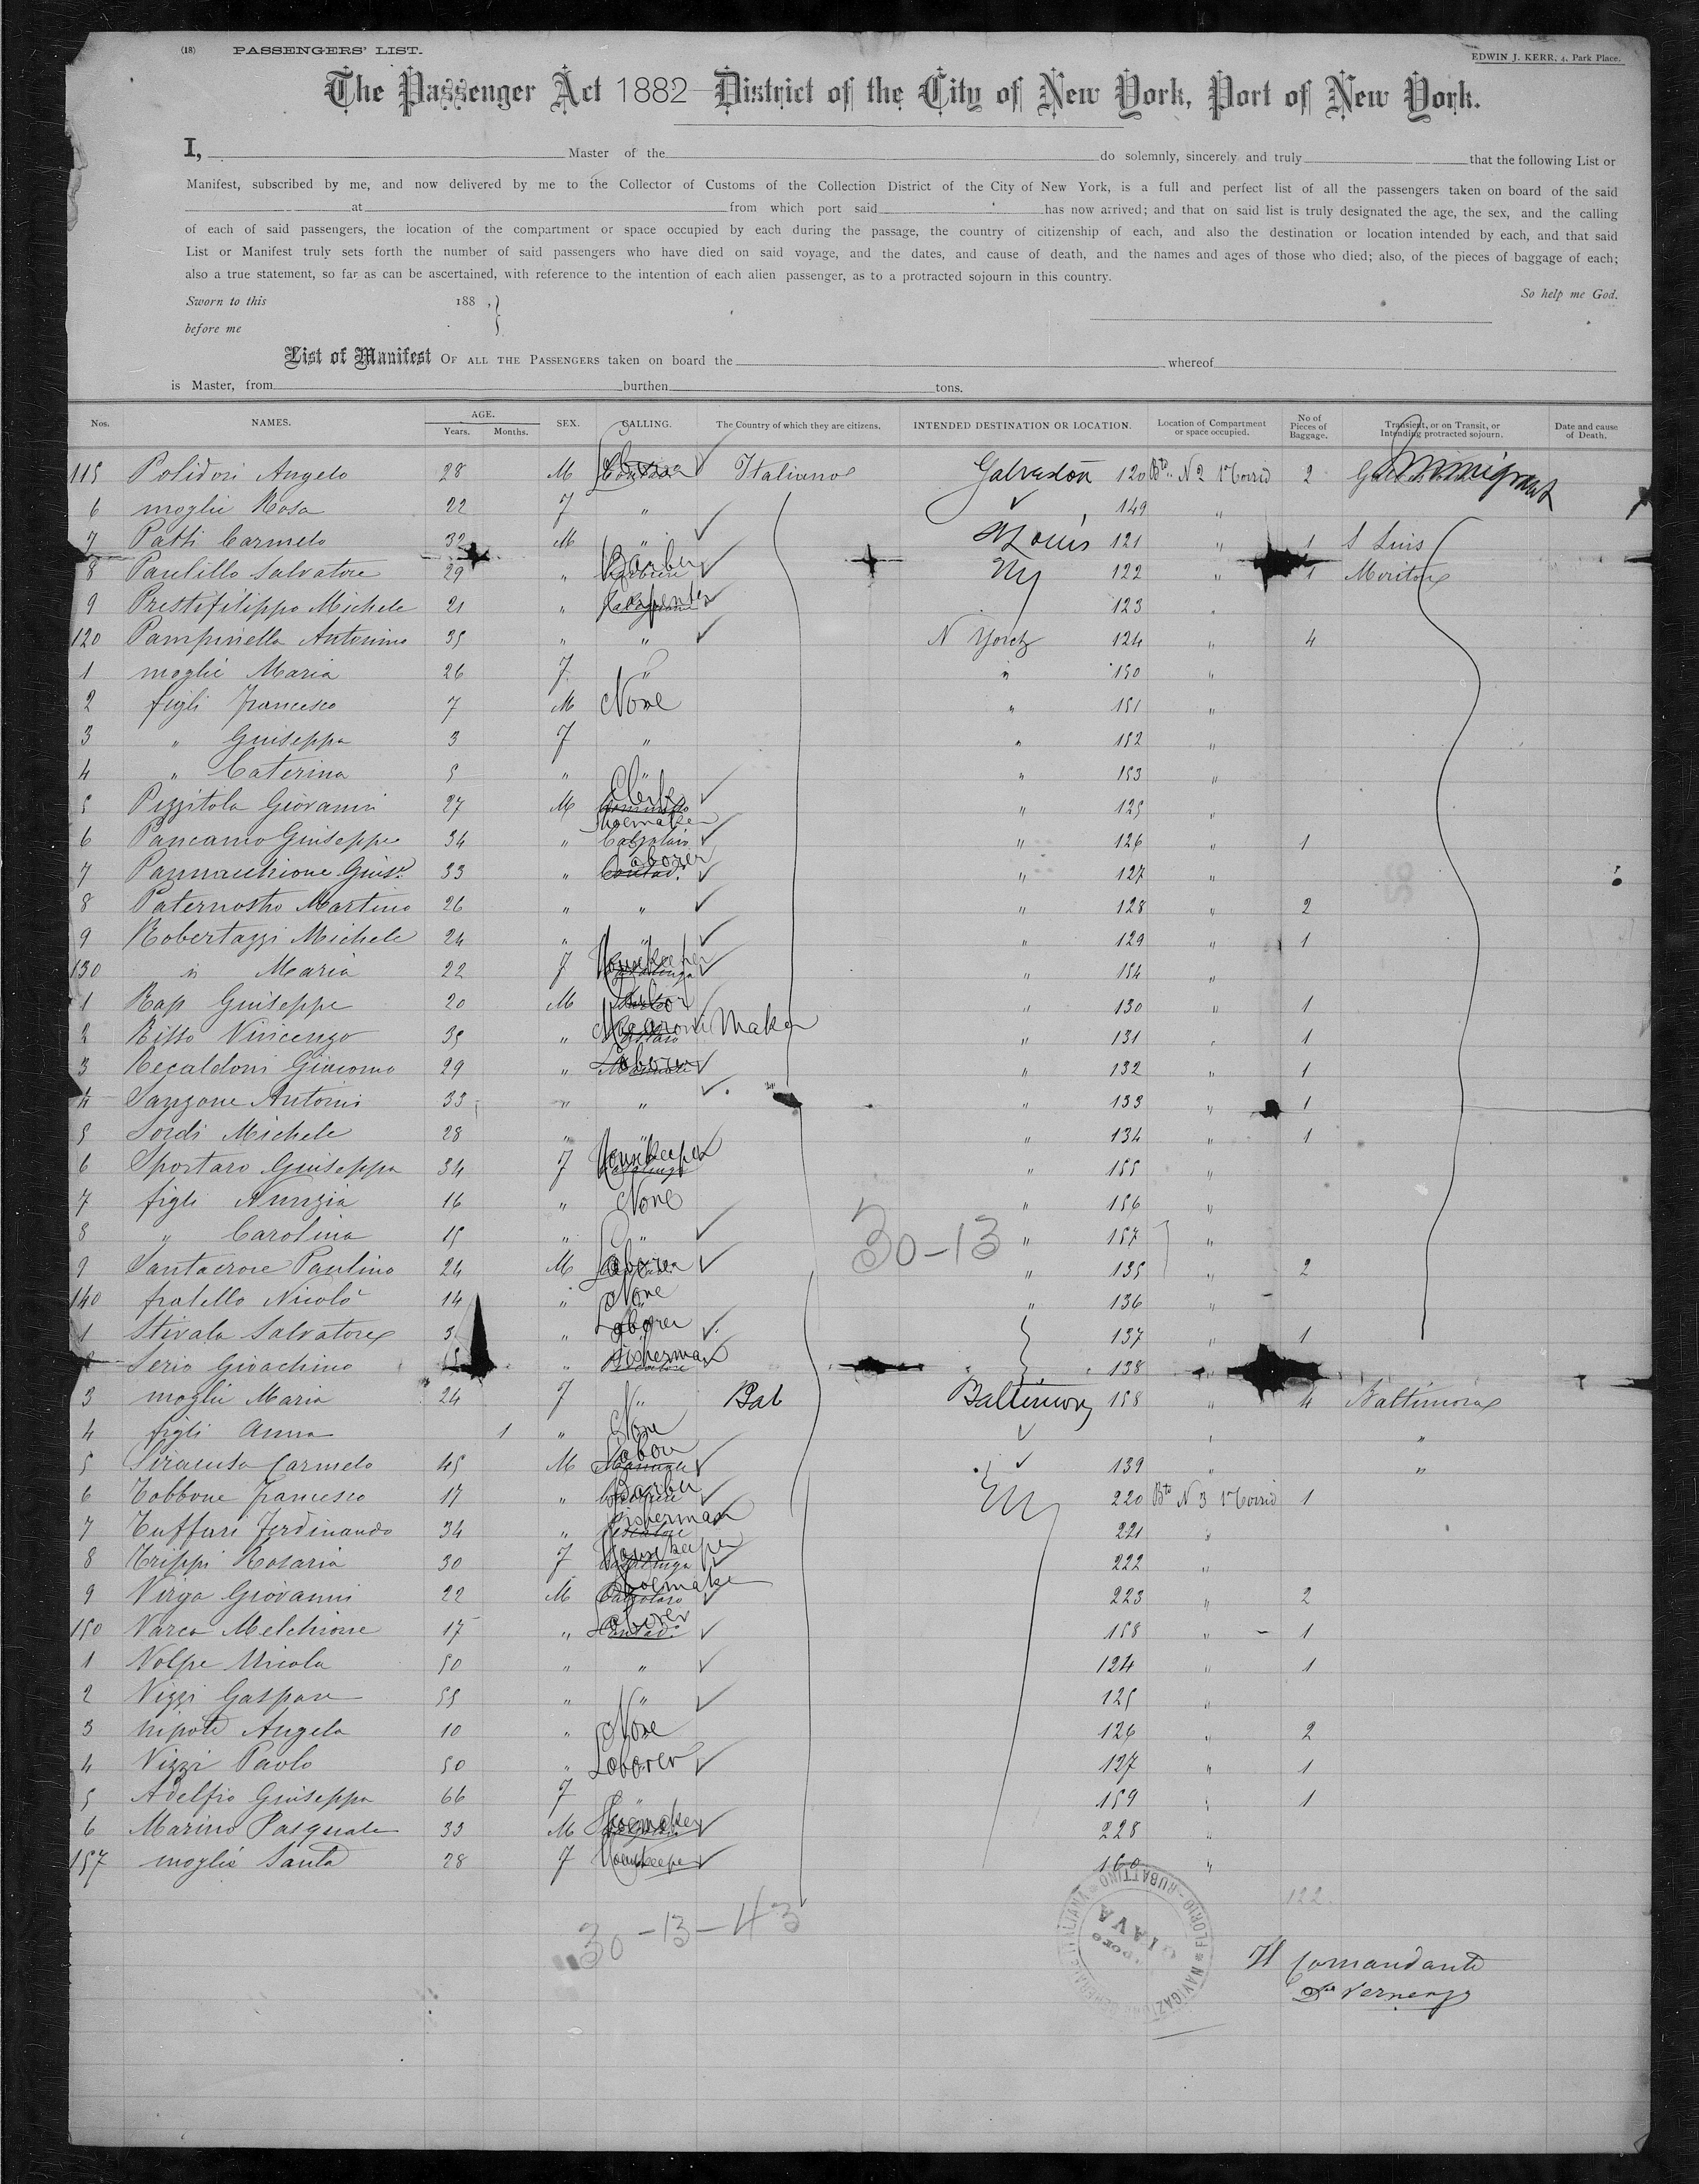 (18) PASSENGERS' LIST.
EDWIN J. KERR, 4, Park Place.
The Passenger Act 1882 District of the City of New York, Port of New York.
I, Master of the do solemnly, sincerely and truly that the following List or
Manifest, subscribed by me, and now delivered by me to the Collector of Customs of the Collection District of the City of New York, is a full and perfect list of all the passengers taken on board of the said
at from which port said has now arrived; and that on said list is truly designated the age, the sex, and the calling
of each of said passengers, the location of the compartment or space occupied by each during the passage, the country of citizenship of each, and also the destination or location intended by each, and that said
List or Manifest truly sets forth the number of said passengers who have died on said voyage, and the dates, and cause of death, and the names and ages of those who died; also, of the pieces of baggage of each;
also a true statement, so far as can be ascertained, with reference to the intention of each alien passenger, as to a protracted sojourn in this country.
Sworn to this 188 , } So help me God.
before me
List of Manifest OF ALL THE PASSENGERS taken on board the whereof
is Master, from burthen tons.
Nos. NAMES. AGE. Years. Months. SEX. CALLING. The Country of which they are citizens. INTENDED DESTINATION OR LOCATION. Location of Compartment or space occupied. No of Pieces of Baggage. Transient, or on Transit, or Intending protracted sojourn. Date and cause of Death.
115 Polidori Angelo 28 M Italiano Galveston 120 Bto N 2 1º Corrid 2 Immigrant
6 moglie Rosa 22 F " 149 "
7 Patti Carmelo 32 M " St Louis 121 " 1 S Luis
8 Paulillo Salvatore 29 " Barber Barbiere NY 122 " 1
9 Prestifilippo Michele 21 " Carpenter 123 "
120 Pampinella Antonino 35 " " N Yorck 124 " 4
1 moglie Maria 26 F " " 150 "
2 figli Francesco 7 M None " 151 "
3 " Giuseppa 3 F " " 152 "
4 " Caterina 5 " " " 153 "
5 Pizzitola Giovanni 27 M Clerk " 125 "
6 Pancamo Giuseppe 34 " Shoemaker Calzolaio " 126 " 1
7 Pannacchione Gius.e 33 " Laborer Contad. " 127 "
8 Paternostro Martino 26 " " " 128 " 2
9 Robertazzi Michele 24 " " " 129 " 1
130 " Maria 22 F Housekeeper Casalinga " 154 "
1 Rap Giuseppe 20 M " 130 " 1
2 Risso Vincenzo 35 " Macaroni Maker " 131 " 1
3 Recaldoni Giacomo 29 " Laborer " 132 " 1
4 Sanzone Antonio 33 " " " 133 " 1
5 Sordi Michele 28 " " " 134 " 1
6 Sportaro Giuseppa 34 F Housekeeper Casalinga " 155 "
7 figli Nunzia 16 " None " 156 "
8 " Carolina 15 " " " 157 "
30-13
9 Santacroce Paulino 24 M Laborer " 135 " 2
140 fratello Nicolò 14 " None " 136 "
1 Stivala Salvatore 3 " Laborer 137 " 1
Serio Gioachino " Fisherman Pescatore " 138 "
3 moglie Maria 24 F " Bal Baltimore 158 " 4 Baltimora
4 figli Anna 1 " None " "
5 Siracusa Carmelo 45 M Labor 139 " "
6 Tobbone Francesco 17 " Barber Barbiere NY 220 Bto N 3 1º Corrid 1
7 Tuffari Ferdinando 34 " Fisherman Pescatore 221 "
8 Trippi Rosaria 30 F Housekeeper Casalinga 222 "
9 Virga Giovanni 22 M Shoemaker Calzolaio 223 " 2
150 Varca Melchiorre 17 " Laborer Contad. 158 " 1
1 Volpe Nicola 50 " " 124 " 1
2 Vizzi Gaspare 55 " " 125 "
3 nipote Angelo 10 " None 126 " 2
4 Vizzi Paolo 50 " Laborer 127 " 1
5 Adelfio Giuseppa 66 F " 159 " 1
6 Marino Pasquale 33 M Shoemaker 228 "
157 moglie Santa 28 F Housekeeper 160 "
122
30-13-43
NAVIGAZIONE GENERALE ITALIANA FLORIO-RUBATTINO
GIAVA
Il Comandante